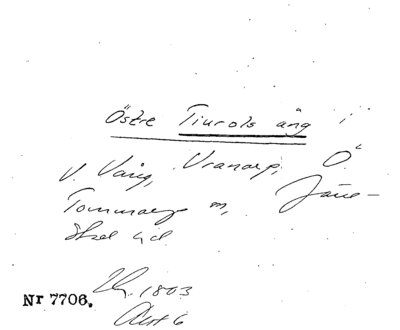 Östre Tiurols äng i
V. Vång, Vranarp, Ö.
Tommarp m,
Nr 7706. 1803
Akt 6